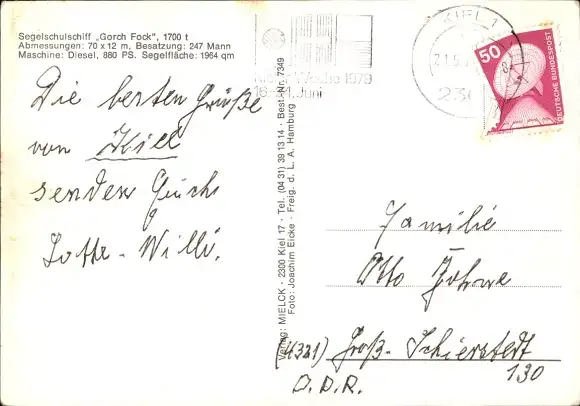 Segelschulschiff „Gorch Fock", 1700 t
Abmessungen: 70 x 12 m, Besatzung: 247 Mann
Maschine: Diesel, 880 PS. Segelfläche: 1964 qm
Die besten Grüße
von Kiel
senden Euch
Lotte - Willi.
Verlag: MIELCK · 2300 Kiel 17 · Tel. (04 31) 39 13 14 · Best.-Nr. 7349
Foto: Joachim Eicke · Freig. d. L. A. Hamburg
KIEL 1
21.5.
Woche 1979
Juni
50
DEUTSCHE BUNDESPOST
Familie
Otto
(4321) Groß-Schierstedt
130
D.D.R.